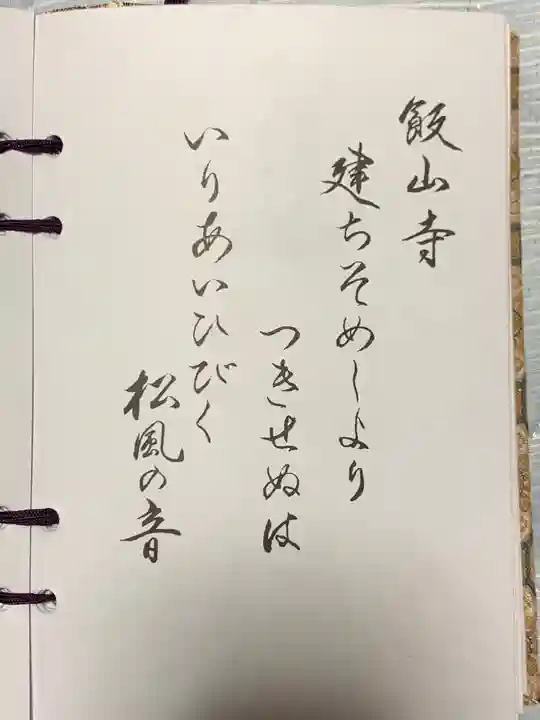 飯山寺
建ちそめしより
つきせぬは
いりあいひびく
松風の音